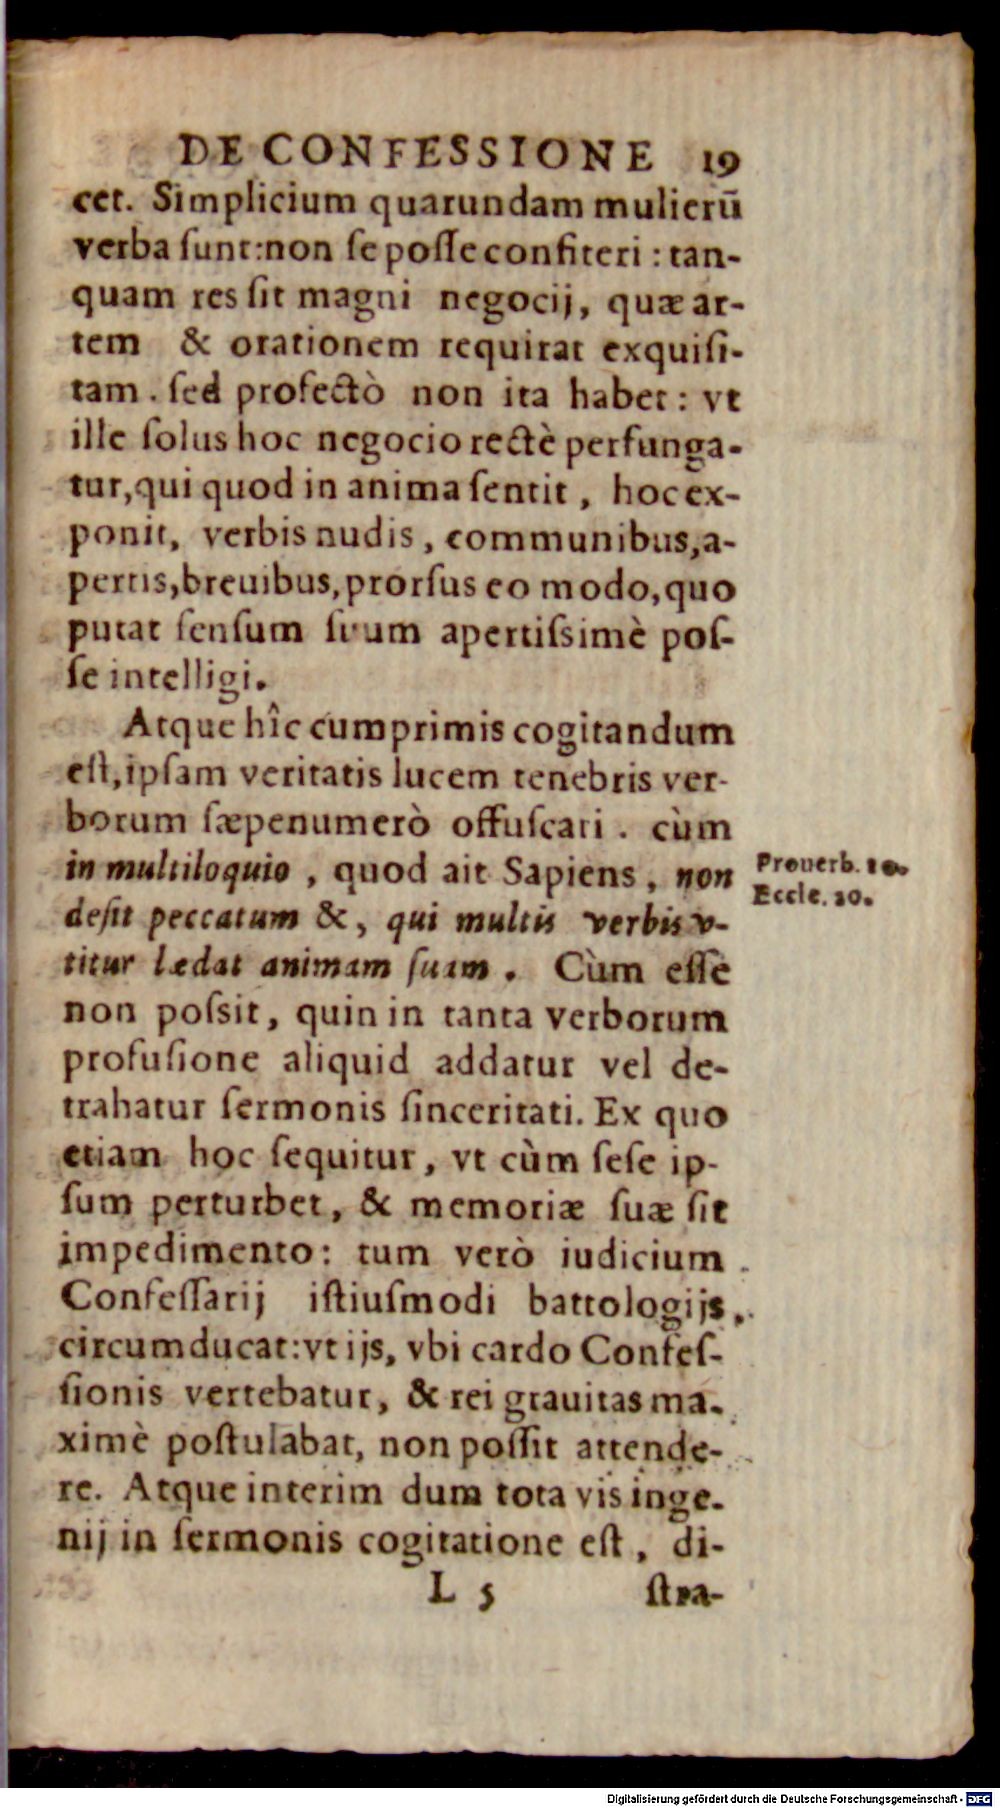 DE CONFESSIONE 19
cet. Simplicium quarundam mulierū
verba ſunt:non ſe poſſe confiteri : tan-
quam res ſit magni negocij, quæ ar-
tem & orationem requirat exquiſi-
tam . ſed profectò non ita habet : vt
ille ſolus hoc negocio rectè perfunga-
tur,qui quod in anima ſentit , hoc ex-
ponit, verbis nudis , communibus,a-
pertis,breuibus,prorſus eo modo,quo
putat ſenſum ſuum apertiſsimè poſ-
ſe intelligi.
Atque hîc cumprimis cogitandum
eſt,ipſam veritatis lucem tenebris ver-
borum ſæpenumerò offuſcari . cùm
in multiloquio , quod ait Sapiens , non
deſit peccatum &, qui multis verbis v-
titur lædat animam ſuam . Cùm eſſe
non poſsit, quin in tanta verborum
profuſione aliquid addatur vel de-
trahatur ſermonis ſinceritati. Ex quo
etiam hoc ſequitur, vt cùm ſeſe ip-
ſum perturbet, & memoriæ ſuæ ſit
impedimento: tum verò iudicium
Confeſſarij iſtiuſmodi battologijs,
circumducat:vt ijs, vbi cardo Confeſ-
ſionis vertebatur, & rei grauitas ma-
ximè poſtulabat, non poſſit attende-
re. Atque interim dum tota vis inge-
nij in ſermonis cogitatione eſt , di-
L 5 ſtra-
Prouerb. 10.
Eccle. 20.
Digitalisierung gefördert durch die Deutsche Forschungsgemeinschaft - DFG